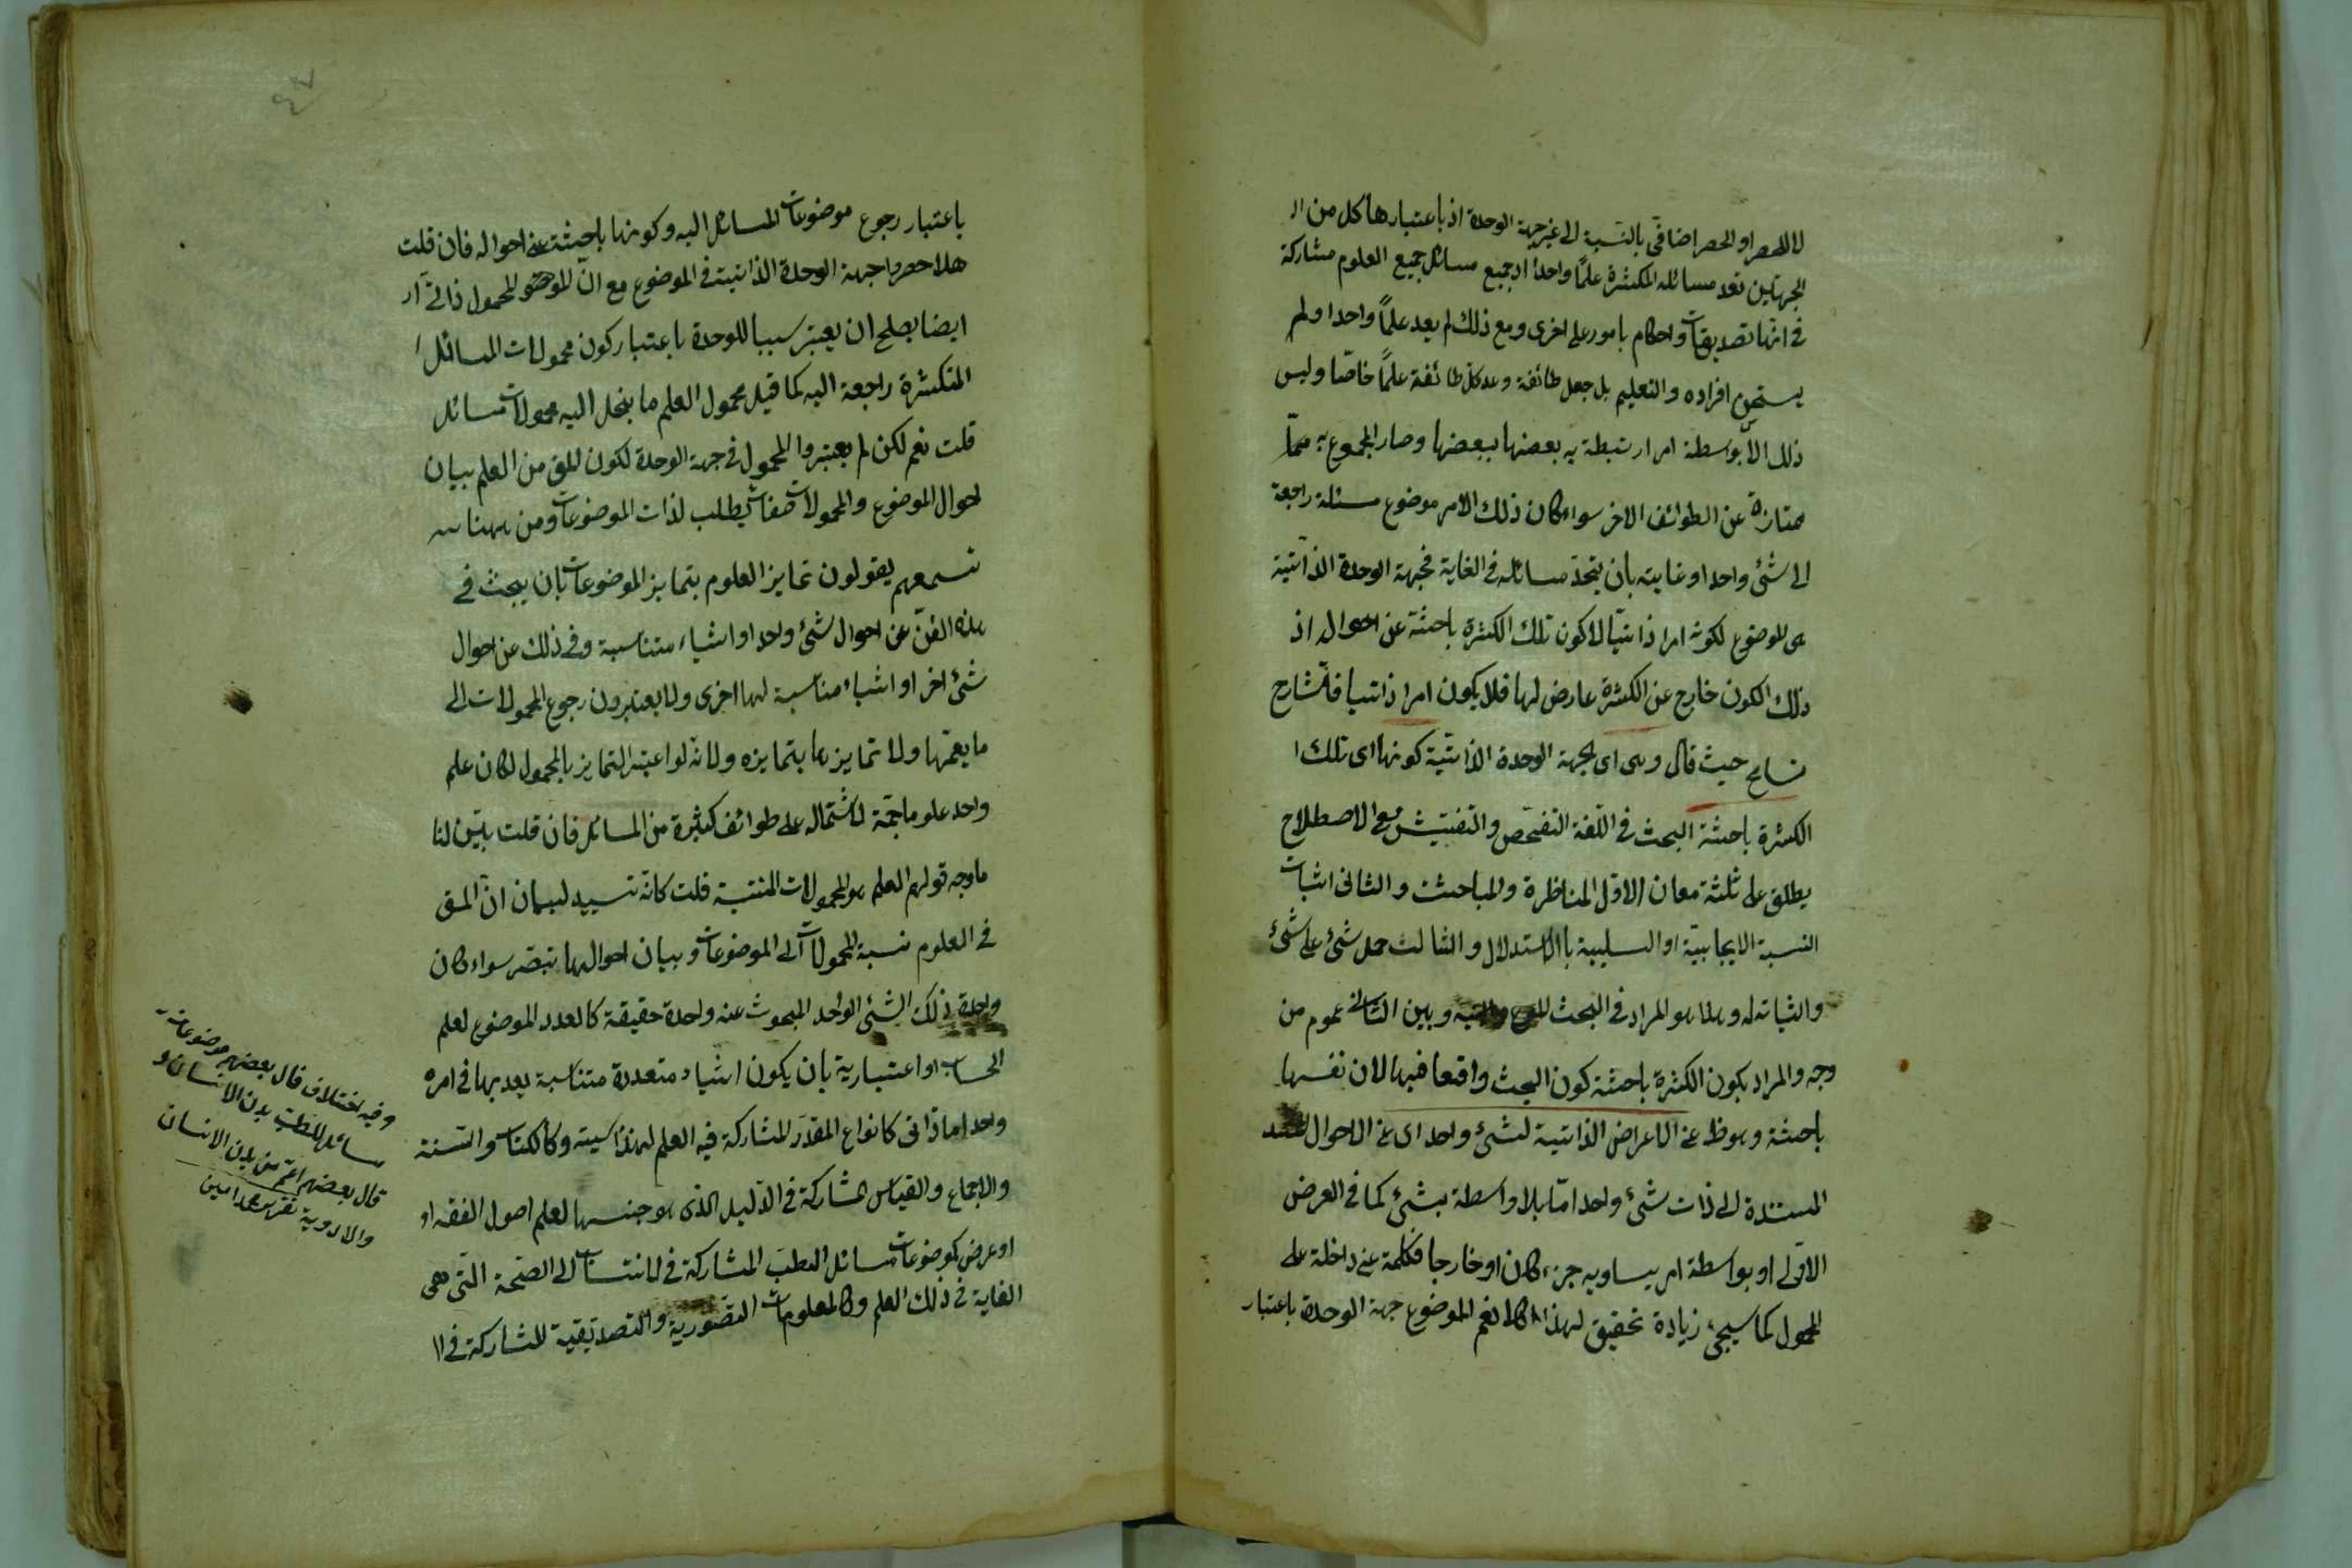 لا للحصر او الحصر اضافي بالنسبة الى غير جهة الوحدة اذ باعتبارها كل من ال
الجهتين تعد مسائله المتكثرة علمًا واحدا اذ جميع مسائل جميع العلوم مشاركة
في انها تصديقات واحكام بامور على اخرى ومع ذلك لم يعد علمًا واحدا ولم
يستحسن افراده والتعليم بل جعل طائفة وعد كل طائفة علمًا خاصّا وليس
ذلك الّا بواسطة امر ارتبطة به بعضها ببعضها وصار المجموع به
ممتازة عن الطوائف الاخر سواء كان ذلك الامر موضوع مسئلة راجعة
الى شئ واحد او غايته بان يتحد مسائله في الغاية فجهة الوحدة الذاتيّة
هى الموضوع لكونه امرا ذاتيّا لا كون تلك الكثرة باحثة عن احواله اذ
ذلك الكون خارج عن الكثرة عارض لها فلا يكون امرا ذاتيا فالشارح
تسامح حيث قال وهى اى لجهة الوحدة الذاتيّة كونها اى تلك ا
الكثرة باحثة البحث في اللّغة التفحص والتفتيش وفي الاصطلاح
يطلق على ثلثة معان الاوّل المناظرة والمباحثة والثانى اثبات
النسبة الايجابيّة او السلبية بالاستدلال والثالث حمل شئ على شئ
واثباته له وهذا هو المراد في البحث وبين الثانى عموم من
وجه والمراد بكون الكثرة باحثة كون البحث واقعا فيها لان نفسها
باحثة وهو ظ عن الاعراض الذاتية لشئ واحد اى عن الاحوال
المستندة الى ذات شئ واحد امّا بلا واسطة بشئ كما في العرض
الاوّلى او بواسطة امر يساويه جزء كان او خارجا فكلمة عن داخلة على
المحمول كما سيجئ زيادة تحقيق لهذا نعم الموضوع جهة الوحدة باعتبار
باعتبار رجوع موضوعات المسائل اليه وكونها باحثة عن احواله فان قلت
هلا حصروا جهة الوحدة الذاتية في الموضوع مع انّ المحمول ذاتى
ايضا يصلح ان يعتبر سببا للوحدة باعتبار كون محمولات المسائل ا
المتكثرة راجعة اليه كما قيل محمول العلم ما ينحل اليه محمولات مسائل
قلت نعم لكن لم يعتبروا المحمول في جهة الوحدة لكون المق من العلم بيان
احوال الموضوع والمحمولات صفات يطلب لذات الموضوعات ومن ههنا
تسمعهم يقولون تمايز العلوم بتمايز الموضوعات بان يبحث في
هذه الفنّ عن احوال شئ واحد او اشياء متناسبة وفي ذلك عن احوال
شئ اخر او اشياء مناسبة لها اخرى ولا يعتبرون رجوع المحمولات الى
ما يعمّها ولا تمايزها بتمايزه ولانّه لو اعتبر التمايز بالمحمول لكان علم
واحد علوما جمّة لاشتماله على طوائف كثيرة من المسائل فان قلت بيّن لنا
ما وجه قولهم العلم هو المحمولات المنتسبة قلت كانّه لبيان انّ المق
في العلوم نسبة المحمولات الى الموضوعات وبيان احوالها سواء كان
وحدة ذلك الشئ الواحد المبحوث عنه وحدة حقيقة كالعدد الموضوع لعلم
الحساب او اعتبارية بان يكون اشياء متعددة متناسبة يعد بها في امره
واحد اما ذاتى كانواع المقدر المشاركة فيه العلم لهندسية وكالكتاب والسّنة
والاجماع والقياس المشاركة في الدّليل الذى هو جنسها لعلم اصول الفقه او
او عرض كموضوعات مسائل الطبّ المشاركة في الانتساب الى الصّحة التى هى
الغاية في ذلك العلم وكالمعلومات التّصورية والتصديقية المشاركة في ال
وفيه اختلاف قال بعضهم موضوعات
مسائل الطبّ بدن الانسان و
قال بعضهم اعمّ من بدن الانسان
والادوية تقرير محمد امين